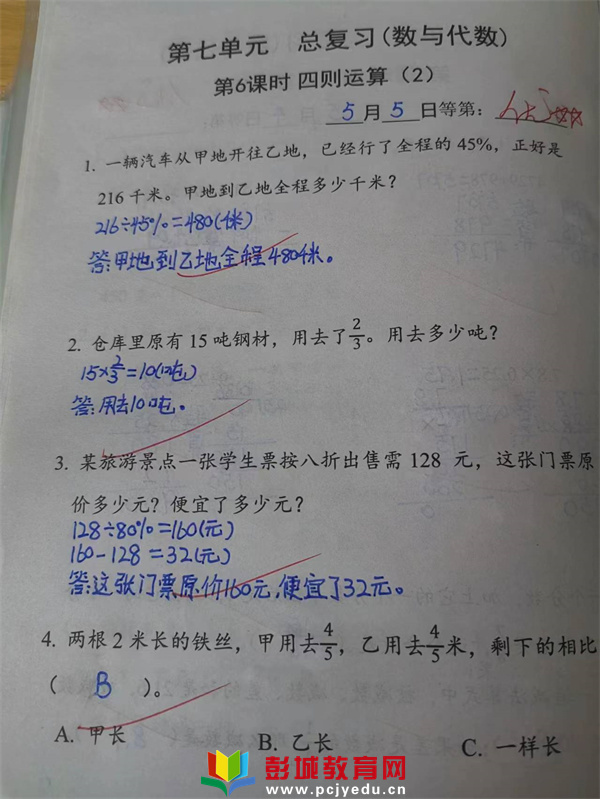 第七单元 总复习(数与代数)
第6课时 四则运算（2）
5月5日等第：
1. 一辆汽车从甲地开往乙地，已经行了全程的45%，正好是
216千米。甲地到乙地全程多少千米？
216÷45%=480(千米)
答:甲地到乙地全程480千米。
2. 仓库里原有15吨钢材，用去了2/3。用去多少吨？
15×2/3=10(吨)
答:用去10吨。
3. 某旅游景点一张学生票按八折出售需128元，这张门票原
价多少元？便宜了多少元？
128÷80%=160(元)
160-128=32(元)
答:这张门票原价160元,便宜了32元。
4. 两根2米长的铁丝，甲用去4/5，乙用去4/5米，剩下的相比
（ B ）。
A. 甲长 B. 乙长 C. 一样长
彭城教育网
www.pcjyedu.cn